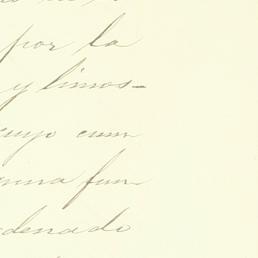 por la
y limos-
cuyo cum
una fun-
denado